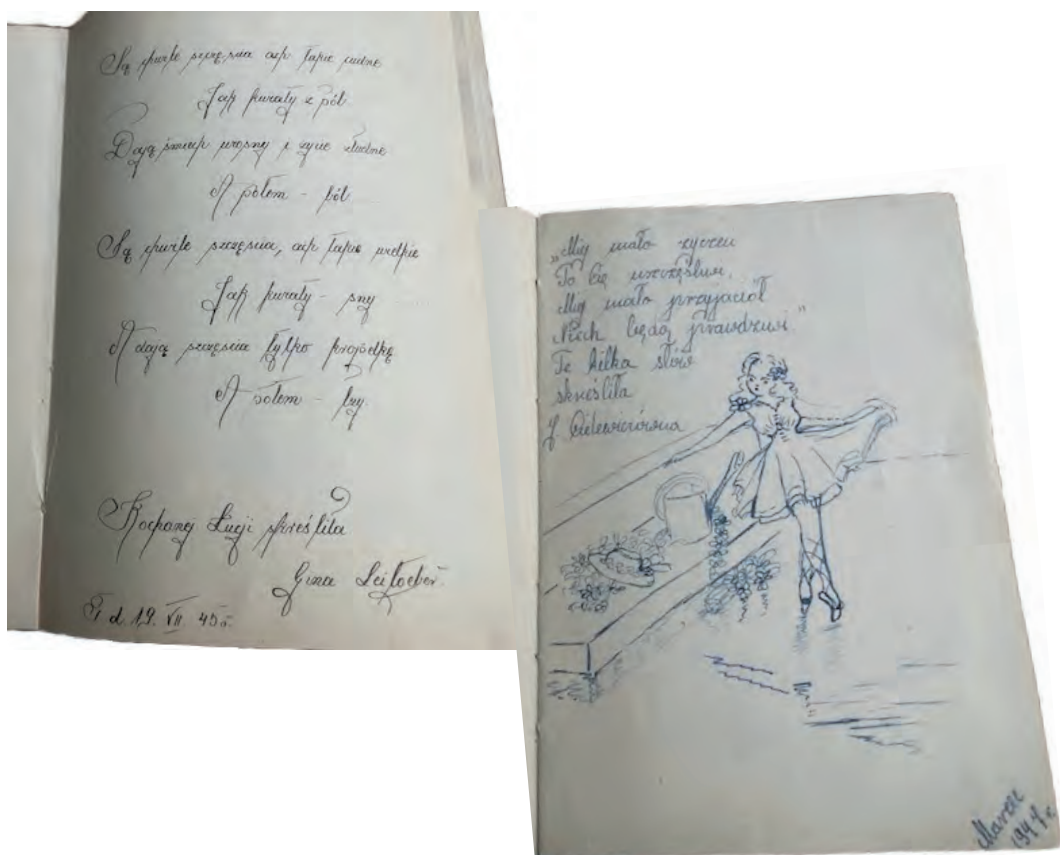 Są chwile szczęścia ach takie cudne
Jak kwiaty z pól
Dają śmiech wiosny i życie złudne
A potem - ból
Są chwile szczęścia, ach takie wielkie
Jak kwiaty - sny
A dają szczęścia tylko kropelkę
A potem - łzy.
Kochanej Łucji skreśliła
Gina
d. 19. VII. 45r.
„Miej mało życzeń
To Cię uszczęśliwi.
Miej mało przyjaciół
Niech będą prawdziwi"
Te kilka słów
skreśliła
Marzec
1947 r.